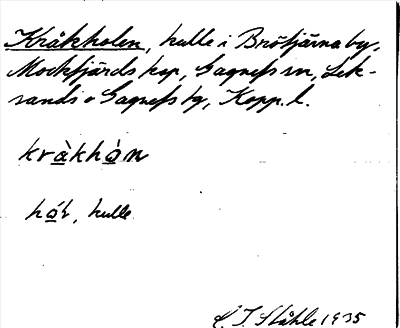 Kråkholen, kulle i Brötjärna by,
Mockfjärds kap, Gagnefs sn, Lek-
sands o Gagnefs tg, Kopp. l.
kràkhòn
hó̱l, kulle
C. I. Ståhle 1935